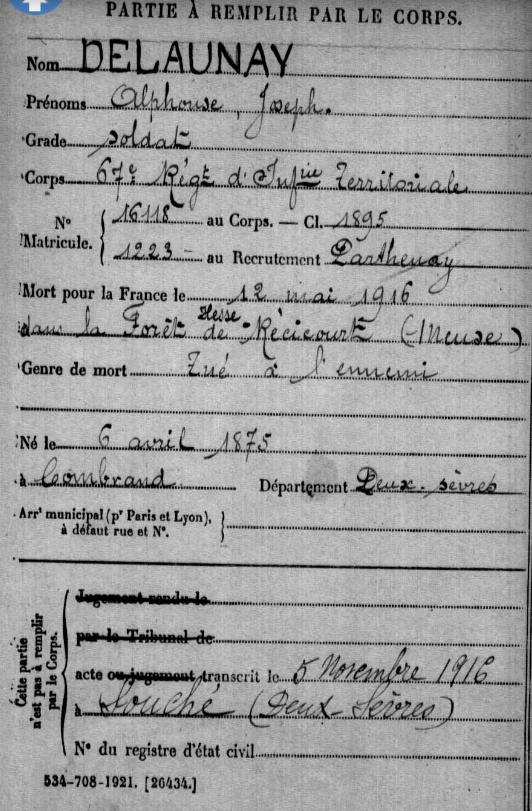 PARTIE À REMPLIR PAR LE CORPS.
Nom DELAUNAY
Prénoms Alphonse, Joseph.
Grade soldat
Corps 67e Régt d'Infrie Territoriale
N° Matricule. { 16118 au Corps. — Cl. 1895
1223 - au Recrutement Parthenay
Mort pour la France le 12 mai 1916
dans la Forêt de Hesse - Récicourt (Meuse)
Genre de mort Tué à l'ennemi
Né le 6 avril 1875
à Combrand Département Deux-sèvres
Arrt municipal (pr Paris et Lyon),
à défaut rue et N°. }
Cette partie n'est pas à remplir par le Corps.
Jugement rendu le
par le Tribunal de
acte ou jugement transcrit le 5 Novembre 1916
à Souché (Deux Sèvres)
N° du registre d'état civil
534-708-1921. [26434.]